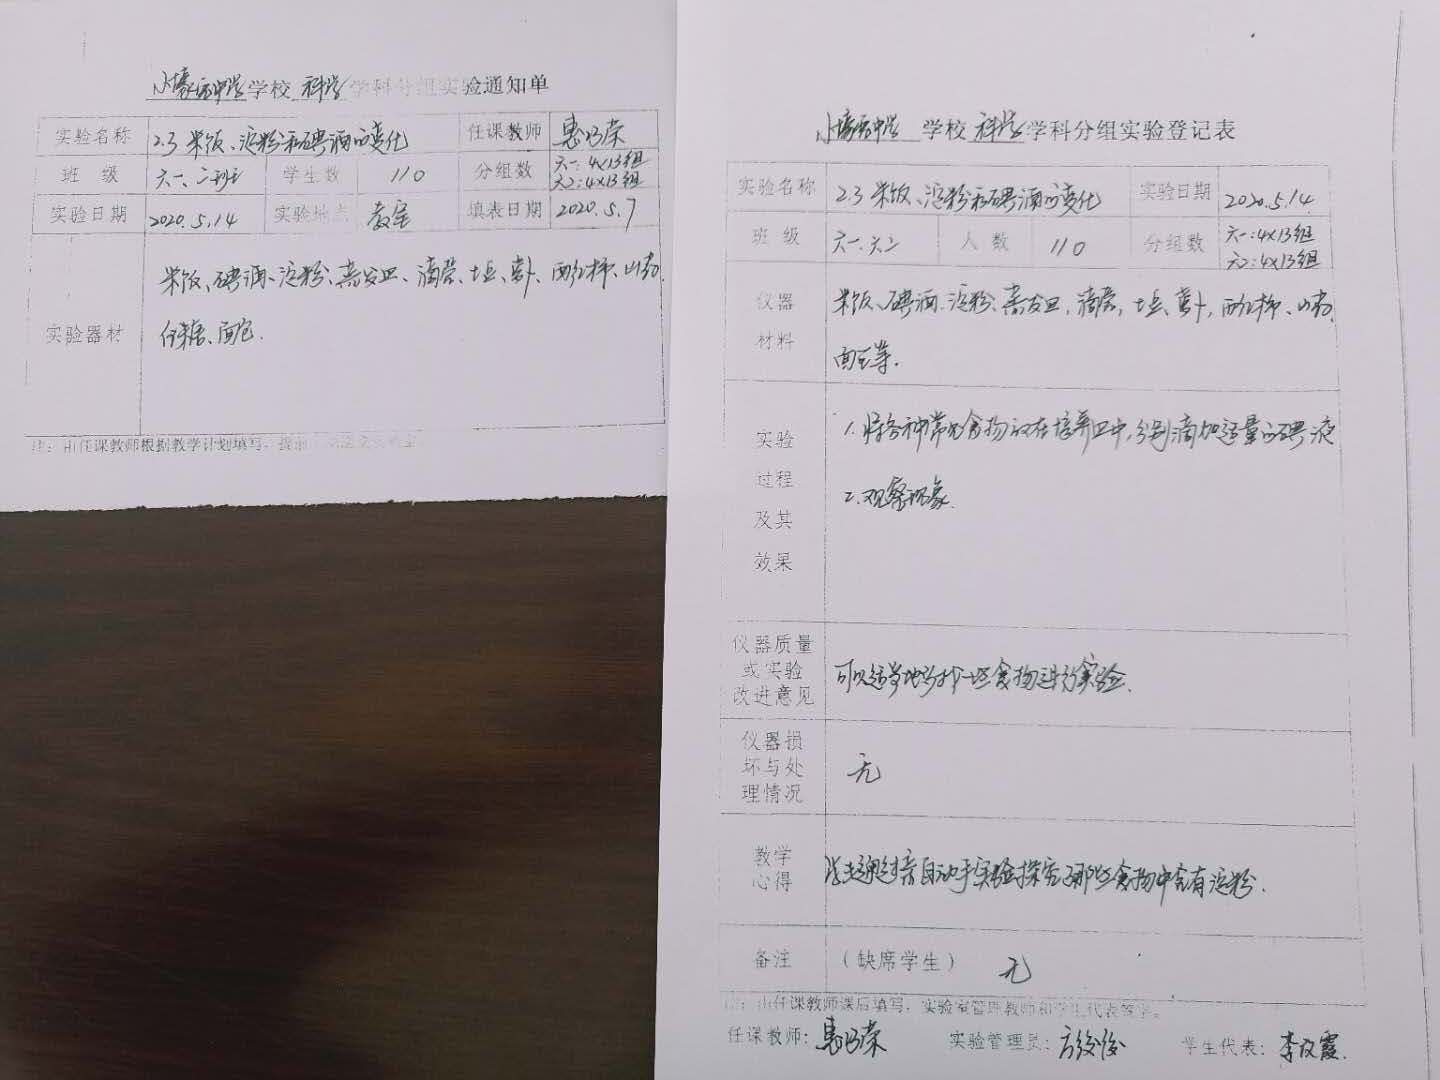 小塬中学 学校 科学 学科分组实验通知单
实验名称 2.3 米饭、淀粉和碘酒的变化 任课教师
班 级 六一、二班 学生数 110 分组数 六一:4×13组
六2:4×13组
实验日期 2020.5.14 实验地点 教室 填表日期 2020.5.7
米饭、碘酒、淀粉、蒸发皿、滴管、土豆、萝卜、西红柿、山药、
实验器材
面包.
注:由任课教师根据教学计划填写,提前
中学 学校 科学 学科分组实验登记表
实验名称 2.3 米饭、淀粉和碘酒的变化 实验日期 2020.5.14
班 级 六一.六二 人 数 110 分组数 六一:4×13组
六2:4×13组
仪器 米饭、碘酒、淀粉、蒸发皿,滴管,土豆、萝卜,西红柿、山药、
材料
面包等.
实验 1.将各种常见食物放在培养皿中,分别滴加适量的碘液
过程 2.观察现象.
及其
效果
仪器质量
或实验 可以适当地多找一些食物进行实验.
改进意见
仪器损
坏与处 无
理情况
教学
心得 学生通过亲自动手实验探究哪些食物中含有淀粉.
备注 (缺席学生) 无
注:由任课教师课后填写,实验室管理教师和学生代表签字。
任课教师: 实验管理员: 学生代表: